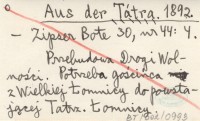 Aus der Tátra. 1892.
- Zipser Bote 30, nr 44: 4.
Przebudowa Drogi Wol-
ności. Potrzeba gościńca
z Wielkiej Łomnicy do powsta-
jącej Tatrz. Łomnicy.